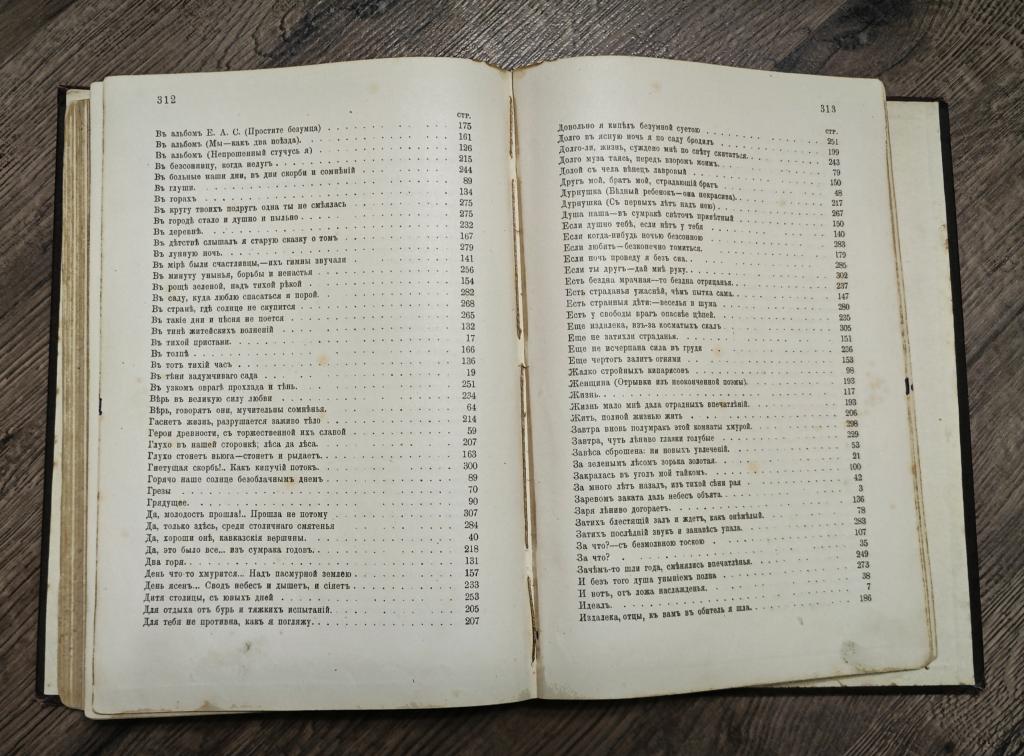 312
стр.
Въ альбомъ Е. А. С. (Простите безумца) 175
Въ альбомъ (Мы—какъ два поѣзда). 161
Въ альбомъ (Непрошенный стучусь я) 126
Въ безсонницу, когда недугъ 215
Въ больные наши дни, въ дни скорби и сомнѣній 244
Въ глуши. 89
Въ горахъ 134
Въ кругу твоихъ подругъ одна ты не смѣялась 275
Въ городѣ стало и душно и пыльно 275
Въ деревнѣ. 232
Въ дѣтствѣ слышалъ я старую сказку о томъ 167
Въ лунную ночь. 279
Въ мірѣ были счастливцы,—ихъ гимны звучали 141
Въ минуту унынья, борьбы и ненастья 256
Въ рощѣ зеленой, надъ тихой рѣкой 154
Въ саду, куда люблю спасаться я порой. 282
Въ странѣ, гдѣ солнце не скупится 268
Въ такіе дни и пѣсня не поется 265
Въ тинѣ житейскихъ волненій 132
Въ тихой пристани. 17
Въ толпѣ 166
Въ тотъ тихій часъ 136
Въ тѣни задумчиваго сада 19
Въ узкомъ оврагѣ прохлада и тѣнь. 251
Вѣрь въ великую силу любви 234
Вѣрь, говорятъ они, мучительны сомнѣнья. 64
Гаснетъ жизнь, разрушается заживо тѣло 214
Герои древности, съ торжественной ихъ славой 59
Глухо въ нашей сторонкѣ; лѣса да лѣса. 207
Глухо стонетъ вьюга—стонетъ и рыдаетъ. 163
Гнетущая скорбь!.. Какъ кипучій потокъ. 300
Горячо наше солнце безоблачнымъ днемъ 89
Грезы 70
Грядущее. 90
Да, молодость прошла!.. Прошла не потому 307
Да, только здѣсь, среди столичнаго смятенья 284
Да, хороши онѣ, кавказскія вершины. 40
Да, это было все... изъ сумрака годовъ. 218
Два горя. 131
День что-то хмурится... Надъ пасмурной землею 157
День ясенъ... Сводъ небесъ и дышетъ, и сіяетъ 233
Дитя столицы, съ юныхъ дней 253
Для отдыха отъ бурь и тяжкихъ испытаній. 205
Для тебя не противна, какъ я погляжу. 207
313
стр.
Довольно я кипѣлъ безумной суетою 251
Долго въ ясную ночь я по саду бродилъ 199
Долго-ли, жизнь, суждено мнѣ по свѣту скитаться. 243
Долго муза таясь, передъ взоромъ моимъ. 79
Долой съ чела вѣнецъ лавровый 150
Другъ мой, братъ мой, страдающій братъ 48
Дурнушка (Бѣдный ребенокъ—она некрасива). 217
Дурнушка (Съ первыхъ лѣтъ надъ нею) 267
Душа наша—въ сумракѣ свѣточъ привѣтный 150
Если душно тебѣ, если нѣтъ у тебя 140
Если когда-нибудь ночью безсонною 283
Если любить—безконечно томиться. 179
Если ночь проведу я безъ сна. 285
Если ты другъ—дай мнѣ руку. 302
Есть бездна мрачная—то бездна отрицанья. 237
Есть страданья ужаснѣй, чѣмъ пытка сама. 147
Есть странныя дѣти:—веселья и шума 280
Есть у свободы врагъ опаснѣе цѣпей. 235
Еще издалека, изъ-за косматыхъ скалъ 305
Еще не затихли страданья. 151
Еще не исчерпана сила въ груди 236
Еще чертогъ залитъ огнями 153
Жалко стройныхъ кипарисовъ 98
Женщина (Отрывки изъ неоконченной поэмы). 193
Жизнь. 117
Жизнь мало мнѣ дала отрадныхъ впечатлѣній. 193
Жить, полной жизнью жить 206
Завтра вновь полумракъ этой комнаты хмурой. 298
Завтра, чуть лѣниво глазки голубые 229
Завѣса сброшена: ни новыхъ увлеченій. 53
За зеленымъ лѣсомъ зорька золотая. 21
Закралась въ уголъ мой тайкомъ. 100
За много лѣтъ назадъ, изъ тихой сѣни рая 42
Заревомъ заката даль небесъ объята. 3
Заря лѣниво догораетъ. 136
Затихъ блестящій залъ и ждетъ, какъ онѣмѣлый. 78
Затихъ послѣдній звукъ и занавѣсъ упала. 283
За что?—съ безмолвною тоскою 107
За что? 35
Зачѣмъ-то шли года, смѣнялись впечатлѣнья. 249
И безъ того душа уныніемъ полна 273
И вотъ, отъ ложа наслажденья. 38
Идеалъ. 7
Издалека, отцы, къ вамъ въ обитель я шла. 186